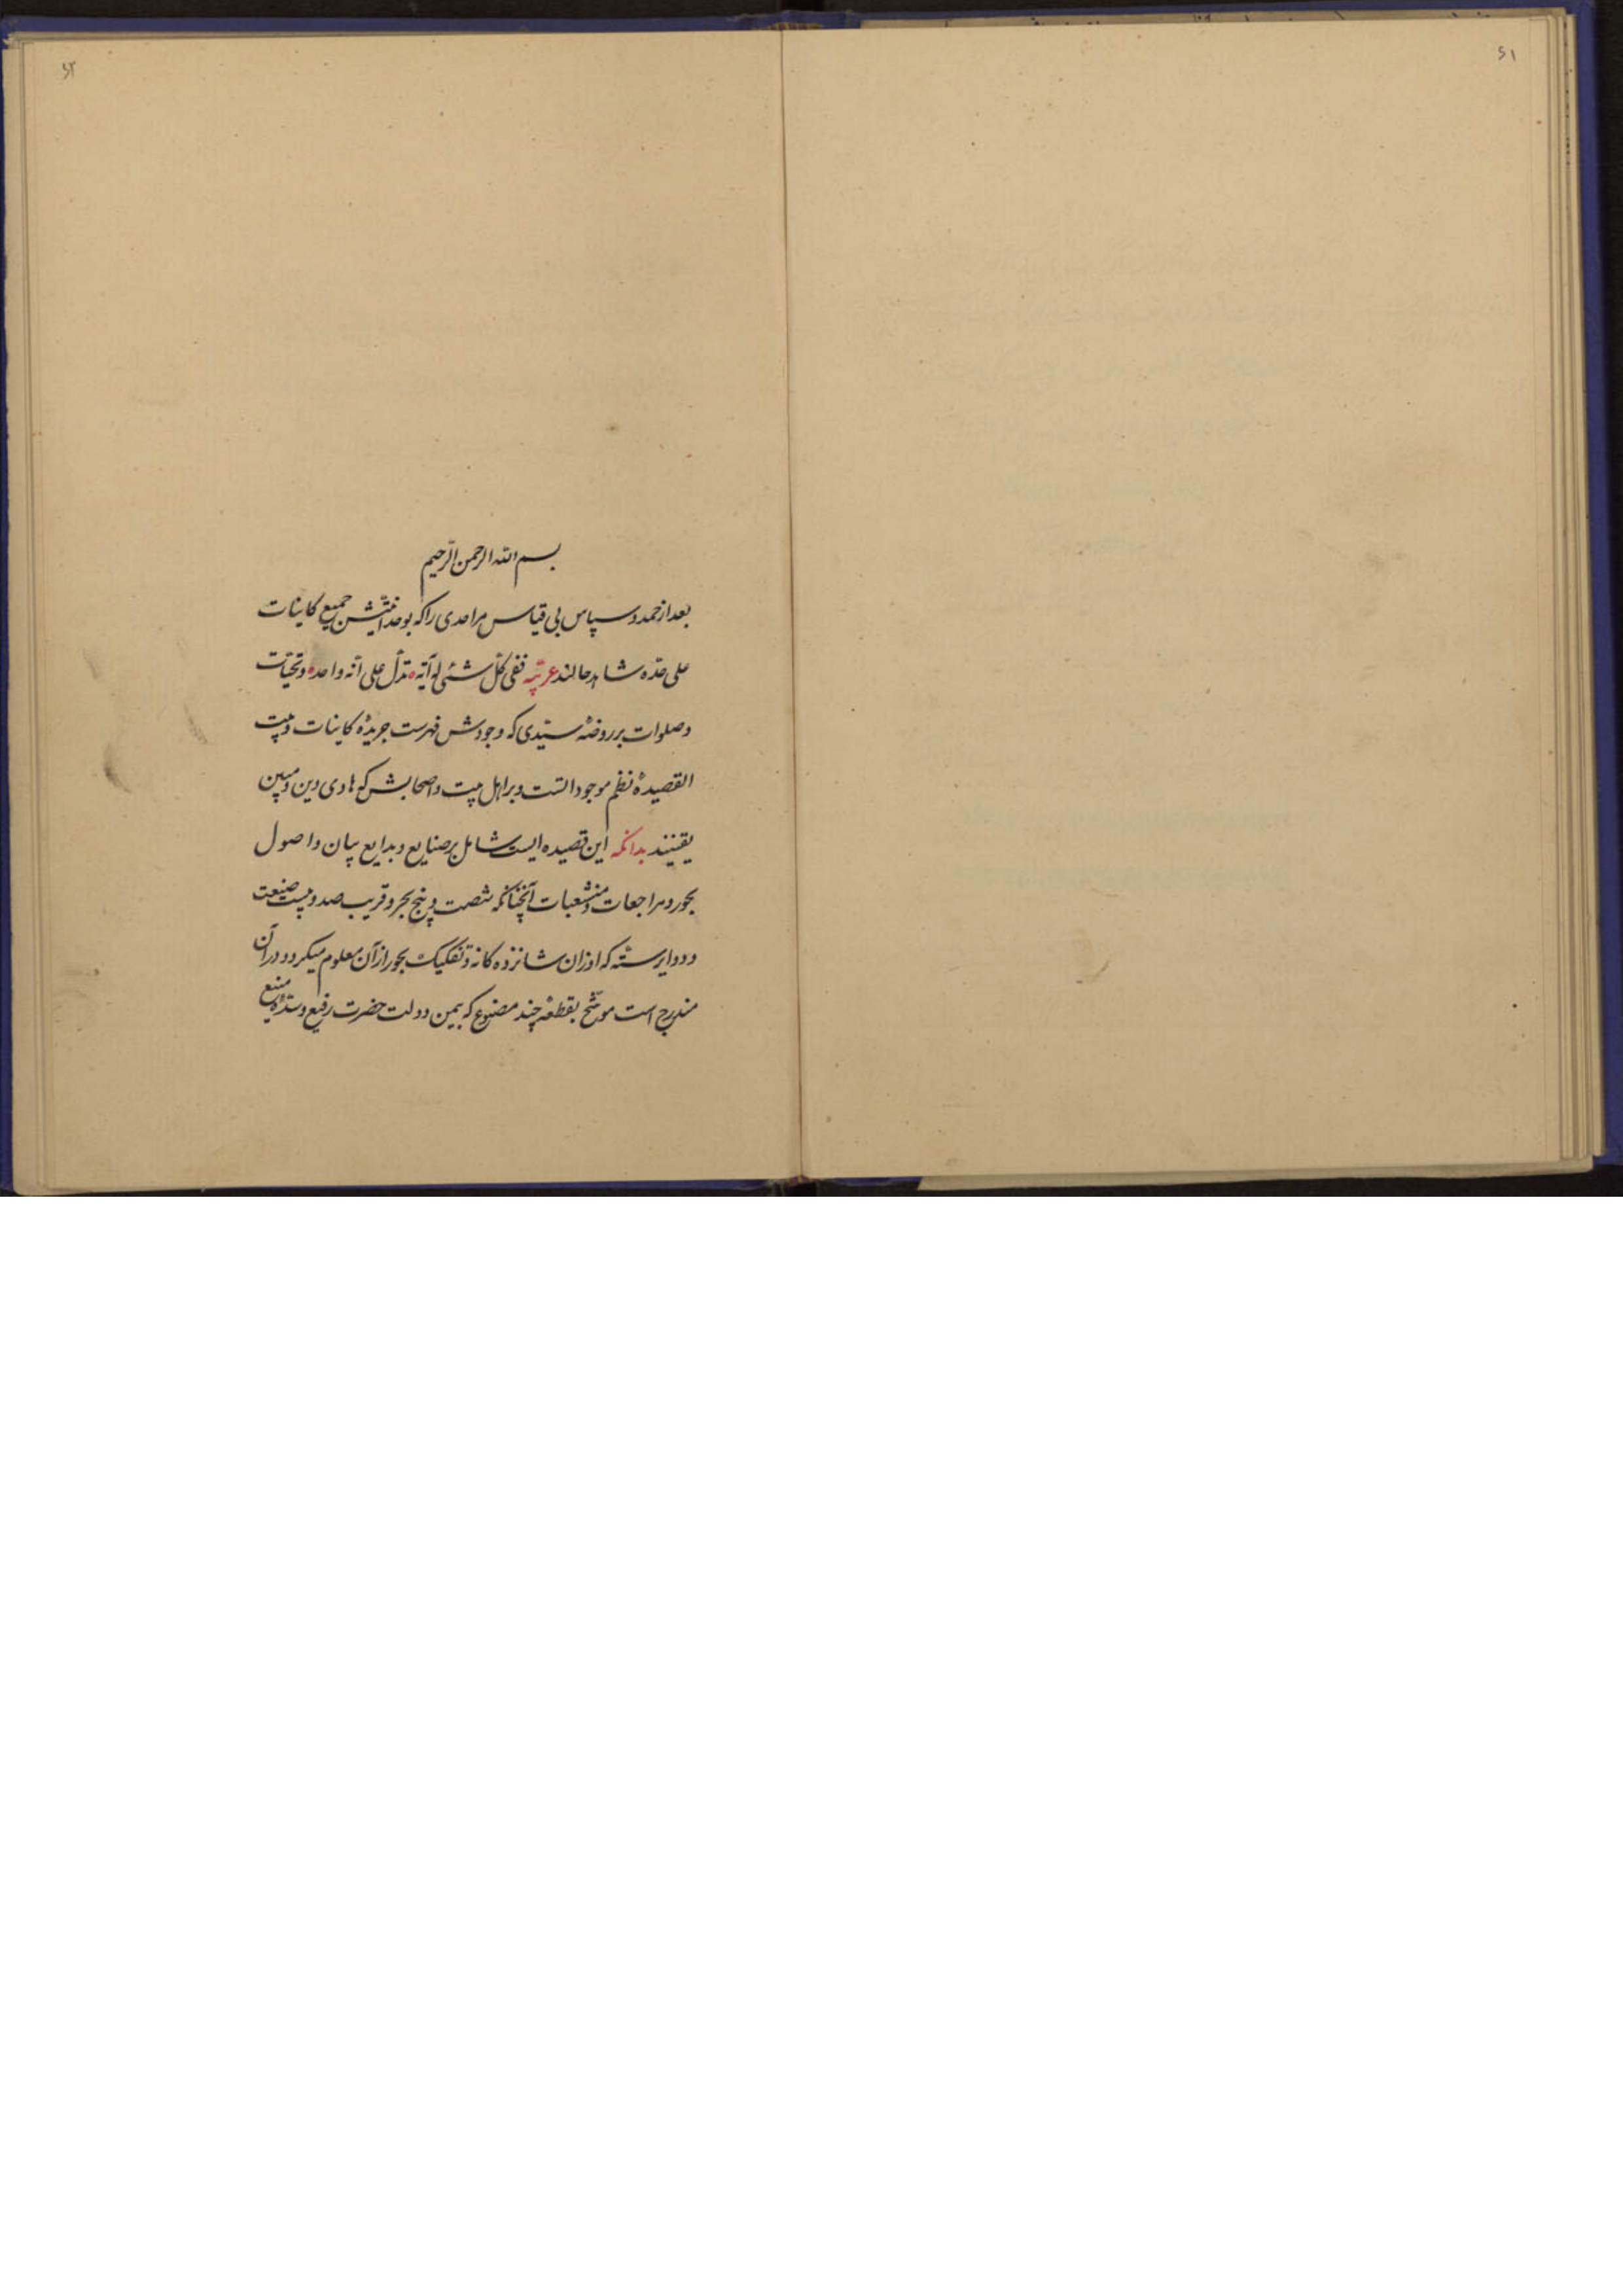 ۶۱
۶۲
بسم الله الرحمن الرحیم
بعد از حمد و سپاس بی قیاس مر احدی را که بوحدانیتش جمیع کاینات
علی حده شاهد حالند عربیّه ففی کلّ شئی له آیة ۰ تدلّ علی أنّه واحد ۰ و تحیّات
و صلوات بر روضهٔ سیّدی که وجودش فهرست جریدهٔ کاینات و بیت
القصیدهٔ نظم موجوداتست و بر اهل بیت و اصحابش که هادی دین و مبین
یقینند بدانکه این قصیده ایست شامل بر صنایع و بدایع بیان و اصول
بحور و مراجعات و منشعبات آنچنانکه شصت و پنج بحر و قریب صد و بیست صنعت
و دوایر سته که اوزان شانزده کانه و تفکیک بحور از آن معلوم میکردد در آن
مندرج است موشّح بقطعهٔ چند مصنوع که بیمن دولت حضرت رفیع و سدّهٔ منیع